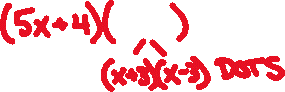 (5x+4)( )
(x+3)(x-3) DOTS